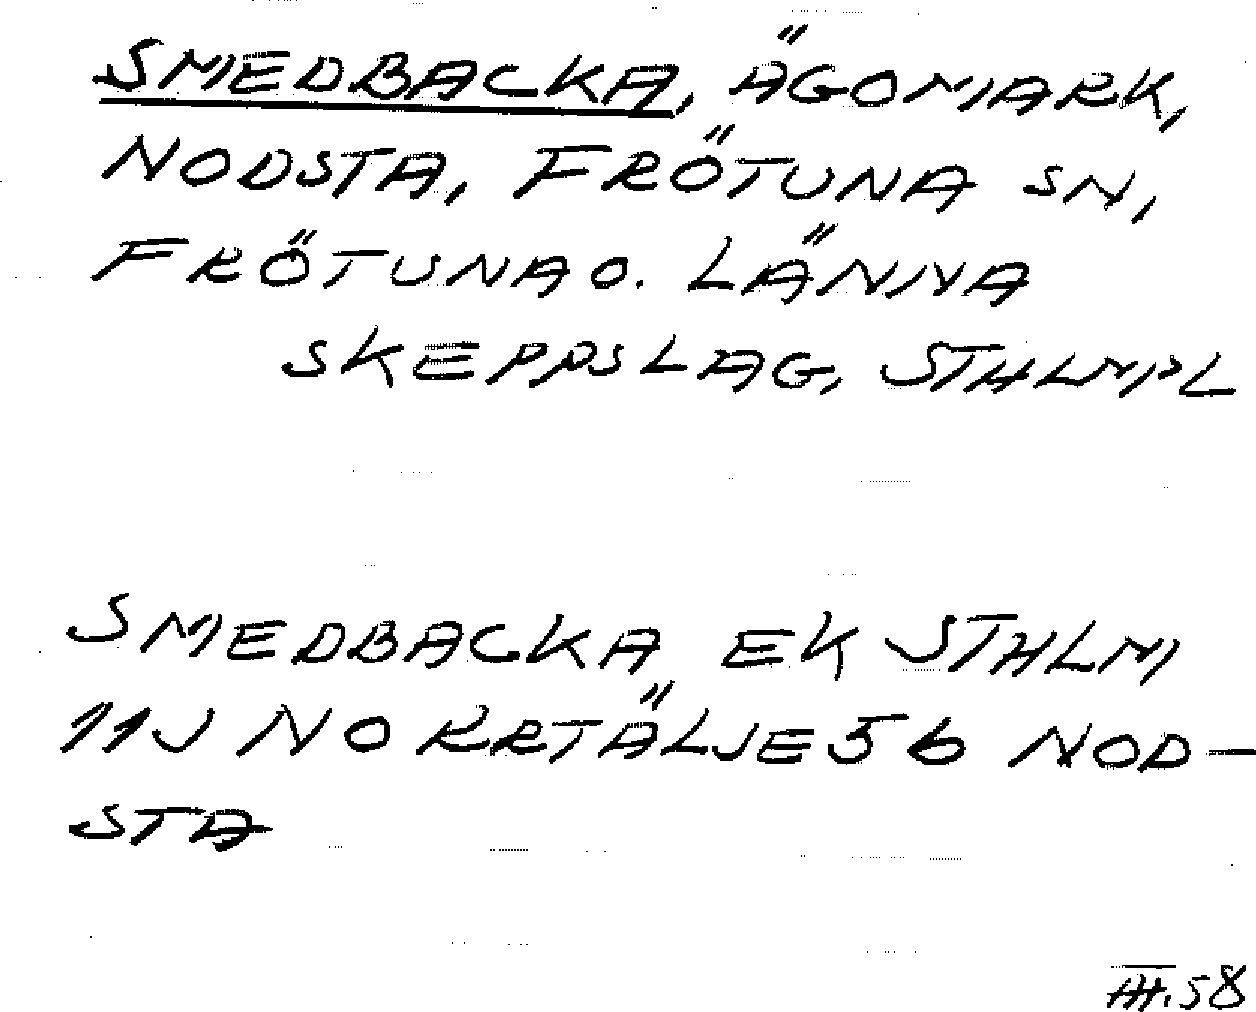 SMEDBACKA, ÄGOMARK,
NODSTA, FRÖTUNA SN,
FRÖTUNA O. LÄNNA
SKEPPSLAG, STHLMPL
SMEDBACKA EK STHLM
11J NO KRTÄLJE 56 NOD-
STA
III.58